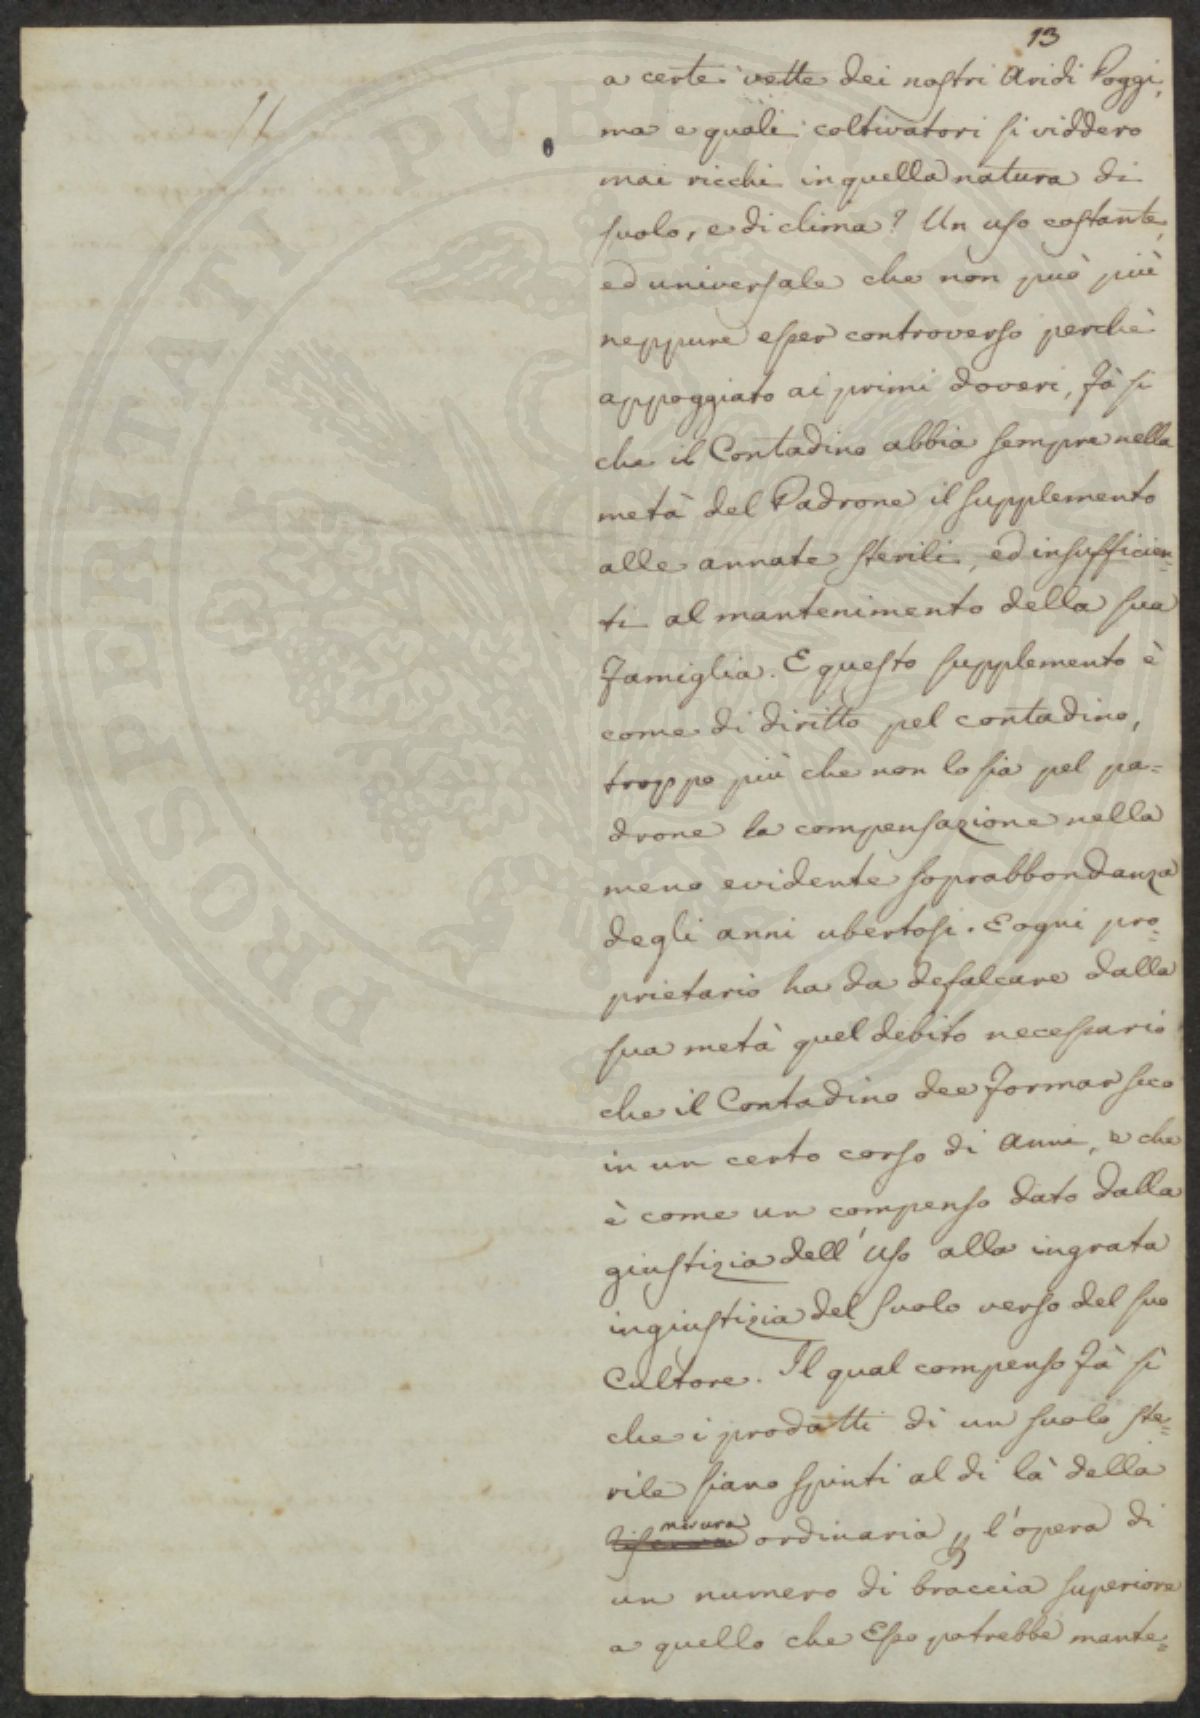 13
a certe vette dei nostri aridi Poggi,
ma e quali coltivatori si viddero
mai ricchi in quella natura di
suolo, e di clima? Un uso costante,
ed universale che non può più
neppure esser controverso perchè
appoggiato ai primi doveri, fà si
che il Contadino abbia sempre nella
metà del Padrone il supplemento
alle annate sterili, ed insufficien=
ti al mantenimento della sua
famiglia. E questo supplemento è
come di diritto pel contadino,
troppo più che non lo sia pel pa=
drone la compensazione nella
meno evidente soprabbondanza
degli anni ubertosi. E ogni pro=
prietario ha da defalcare dalla
sua metà quel debito necessario
che il Contadino dee formar seco
in un certo corso di anni, e che
è come un compenso dato dalla
giustizia dell'uso alla ingrata
ingiustizia del suolo verso del suo
Cultore. Il qual compenso fà sì
che i prodotti di un suolo ste=
rile siano spinti al di là della
misura
ordinaria l'opera di
un numero di braccia superiore
a quello che Esso potrebbe mante=
PROSPERITATI PVBLICAE